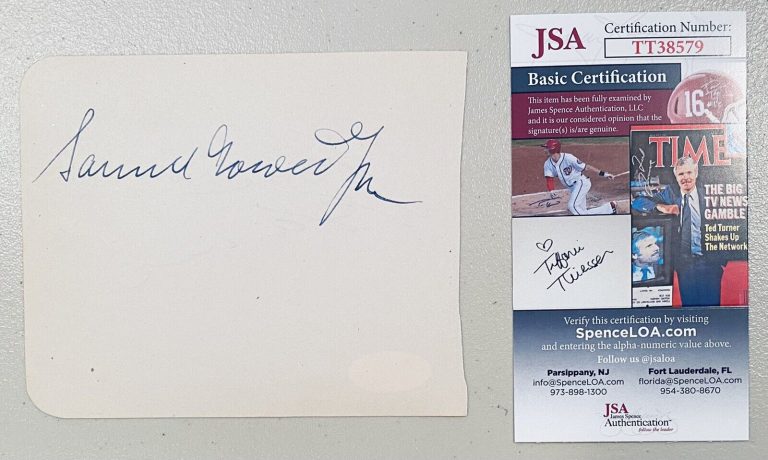 Samuel Gowen Jr
JSA
Certification Number:
TT38579
Basic Certification
This item has been fully examined by
James Spence Authentication, LLC
and it is our considered opinion that the
signature(s) is/are genuine.
16
TIME
THE BIG
TV NEWS
GAMBLE
Ted Turner
Shakes Up
The Network
Tiffani
Thiessen
Verify this certification by visiting
SpenceLOA.com
and entering the alpha-numeric value above.
Follow us @jsaloa
Parsippany, NJ
info@SpenceLOA.com
973-898-1300
Fort Lauderdale, FL
florida@SpenceLOA.com
954-380-8670
JSA
James Spence
Authentication
follow the leader